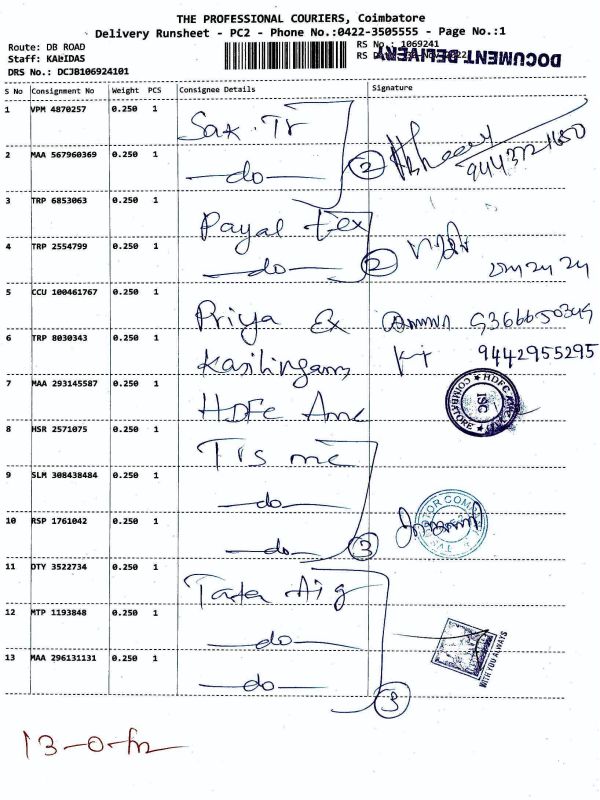 THE PROFESSIONAL COURIERS, Coimbatore
Delivery Runsheet - PC2 - Phone No.:0422-3505555 - Page No.:1
Route: DB ROAD
Staff: KALIDAS
DRS No.: DCJB106924101
RS No.: 1069241
RS D
DOCUMENT DELIVERY
S No Consignment No Weight PCS Consignee Details Signature
1 VPM 4870257 0.250 1 Sak. Tr
2 MAA 567960369 0.250 1 —do— 2
3 TRP 6853063 0.250 1 Payal tex
4 TRP 2554799 0.250 1 —do— 2
5 CCU 100461767 0.250 1 Priya Ex
6 TRP 8030343 0.250 1 Kasilingam 9442955295
7 MAA 293145587 0.250 1 HDFC Amc
HDFC
COIMBATORE
ISC
8 HSR 2571075 0.250 1 TVS mc
9 SLM 308438484 0.250 1 —do—
10 RSP 1761042 0.250 1 —do— 3
11 OTY 3522734 0.250 1 Tata Aig
12 MTP 1193848 0.250 1 —do—
WITH YOU ALWAYS
13 MAA 296131131 0.250 1 —do— 3